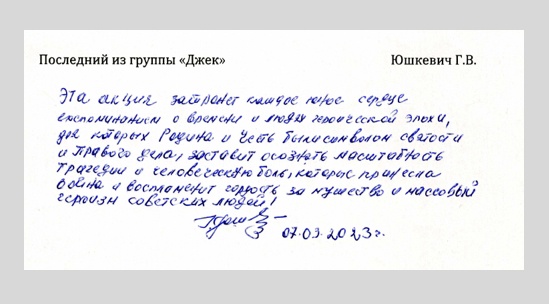 Последний из группы «Джек» Юшкевич Г.В.
Эта акция затронет каждое юное сердце
воспоминанием о времени и людях героической эпохи,
для которых Родина и Честь были символом святости
и правого дела, заставит осознать масштабность
трагедии и человеческую боль, которые принесла
война и воспламенит гордость за мужество и массовый
героизм советских людей!
07.09.2023 г.